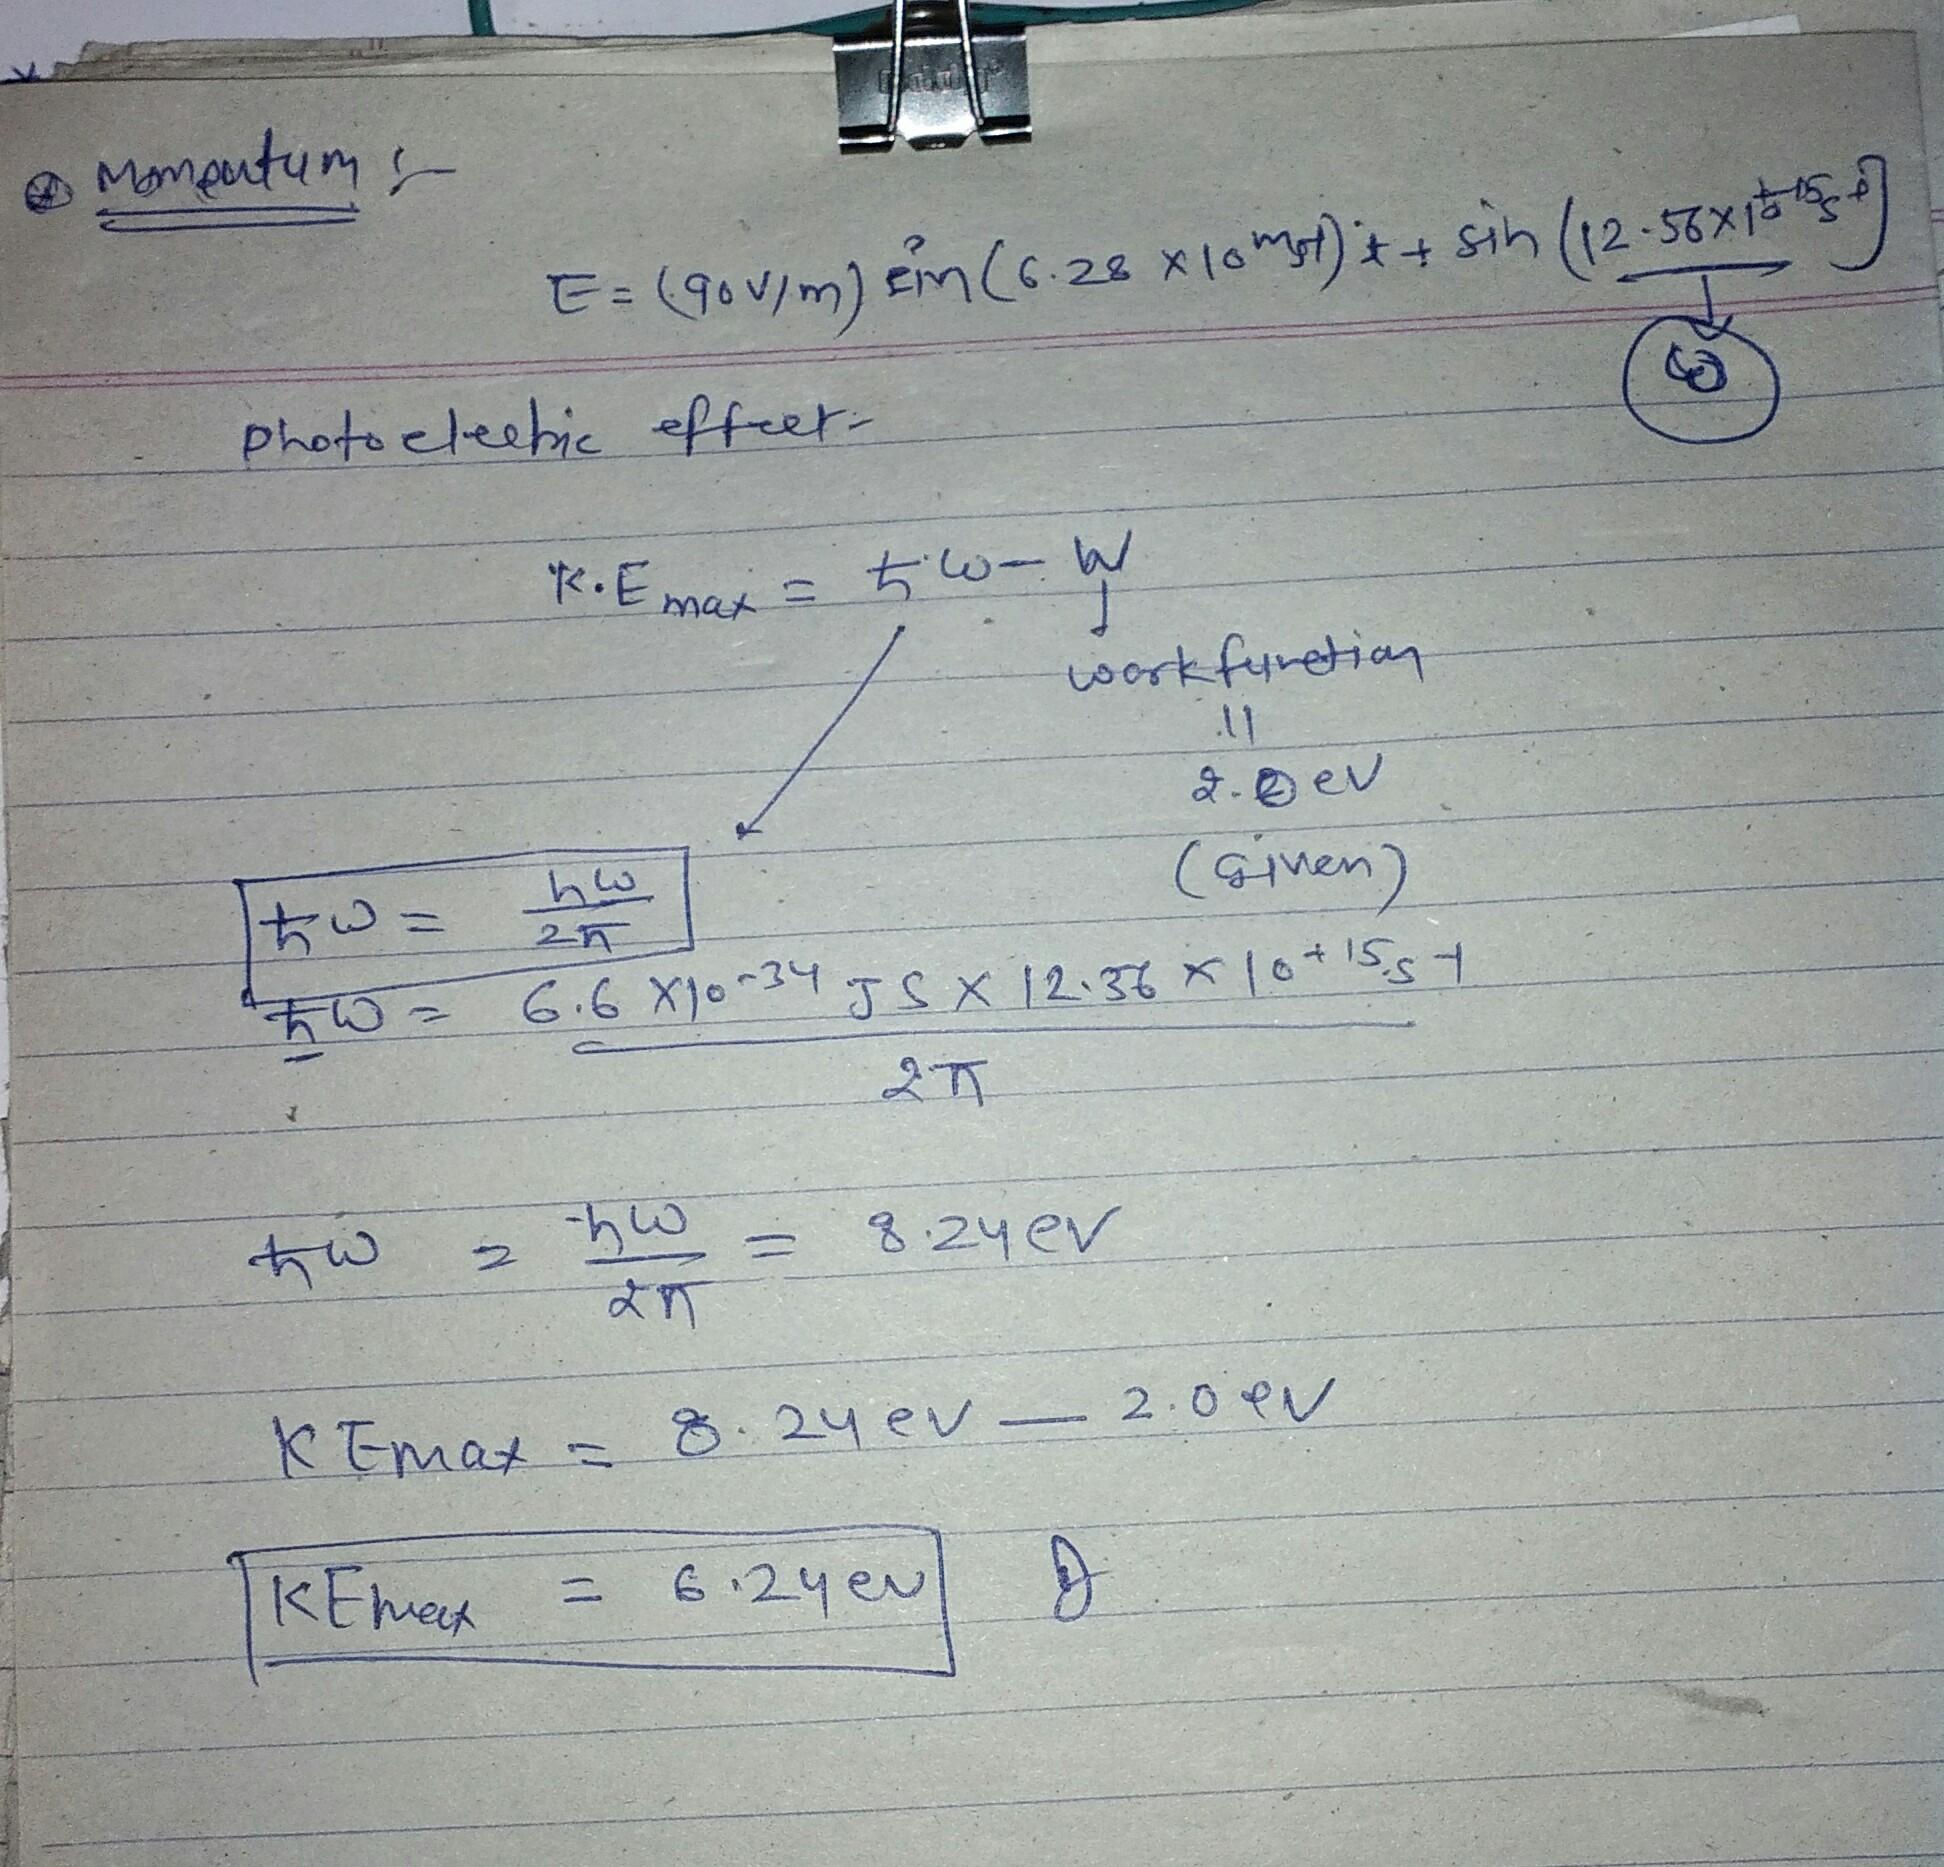 Momentum :-
E = (90 V/m) sin (6.28 × 10 t + sin (12.56 × 10 15 s
ω
photo electric effect -
K.E max = ħω - W
work function
||
2.0 eV
(Given)
ħω = hω / 2π
ħω = 6.6 × 10-34 JS × 12.56 × 10+15 s-1
2π
ħω = hω / 2π = 8.24 eV
KEmax = 8.24 eV — 2.0 eV
KEmax = 6.24 eV